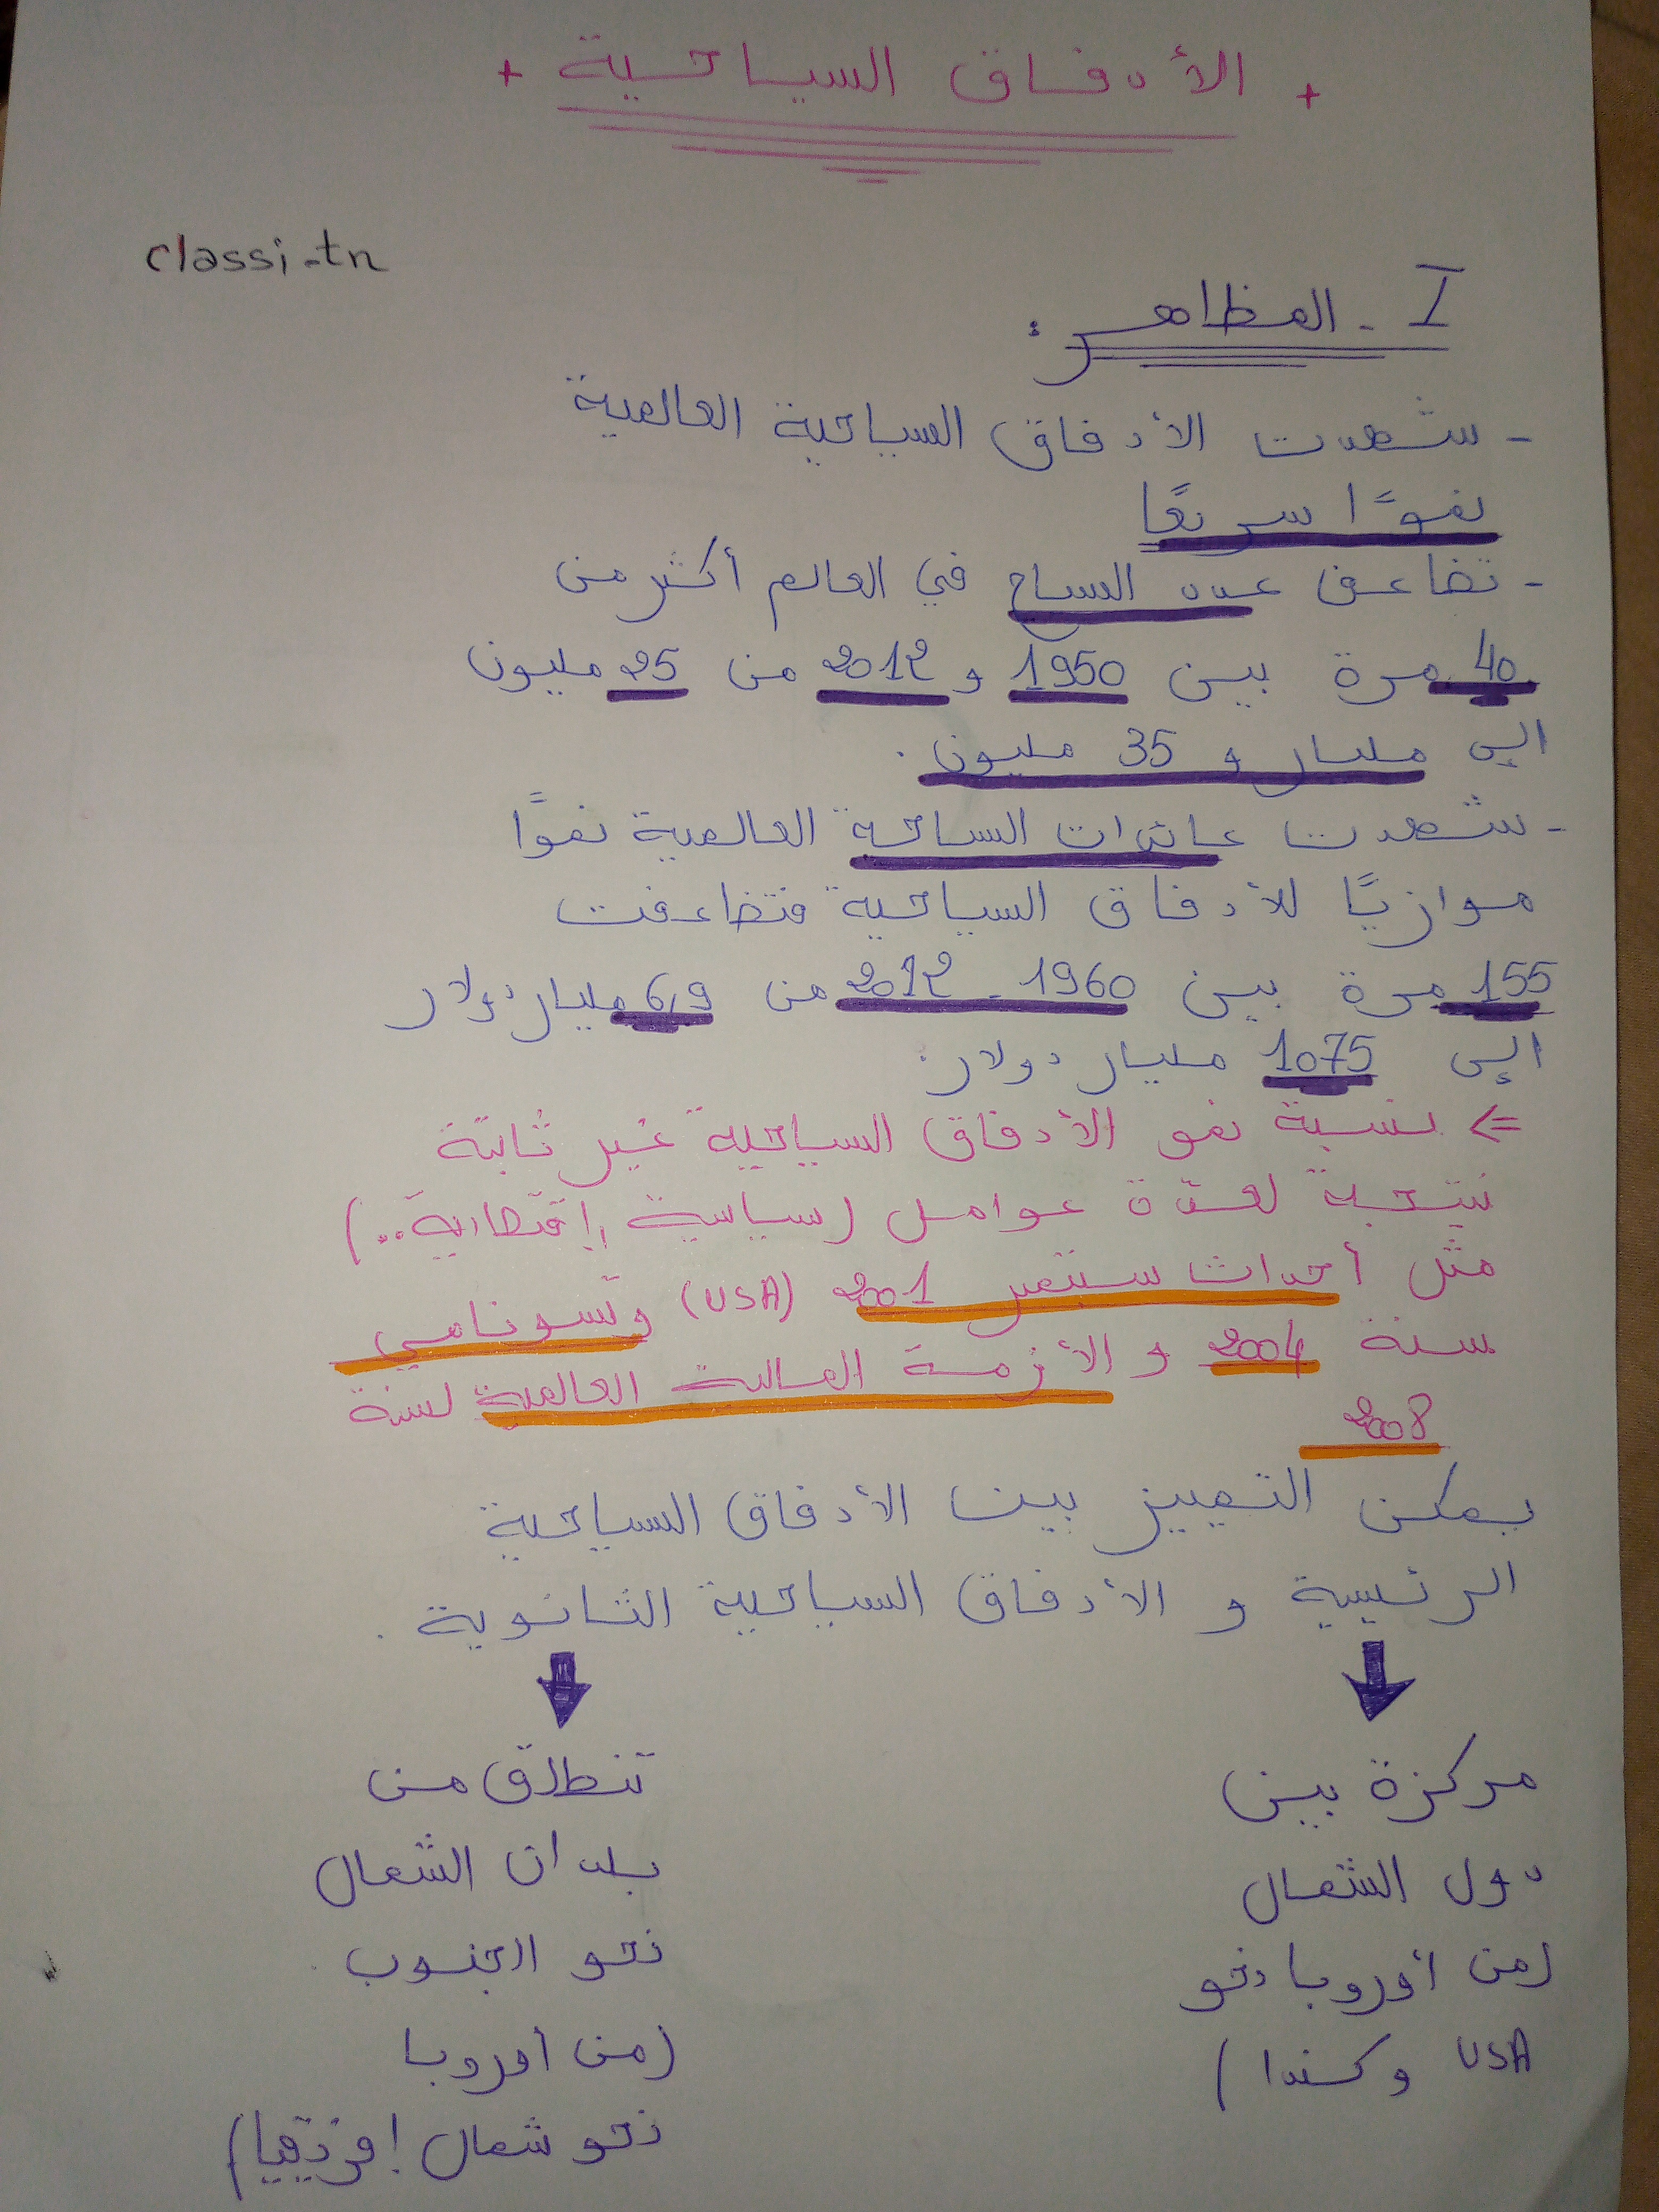 + الأدفاق السياحية +
classi-tn
I - المظاهر :
- شهدت الأدفاق السياحية العالمية
نموًّا سريعًا
- تضاعف عدد السياح في العالم أكثر من
40 مرة بين 1950 و 2012 من 25 مليون
إلى مليار و 35 مليون .
- شهدت عائدات السياحة العالمية نموًّا
موازيًّا للأدفاق السياحية فتضاعفت
155 مرة بين 1960 - 2012 من 6,9 مليار دولار
إلى 1075 مليار دولار .
=> نسبة نمو الأدفاق السياحية غير ثابتة
نتيجة لعدّة عوامل (سياسية , إقتصادية..)
مثل أحداث سبتمبر 2001 (USA) وتسونامي
سنة 2004 و الأزمة المالية العالمية لسنة
2008
يمكن التمييز بين الأدفاق السياحية
الرئيسية و الأدفاق السياحية الثانوية .
مركزة بين
دول الشمال
(من أوروبا نحو
USA وكندا )
تنطلق من
بلدان الشمال
نحو الجنوب
(من أوروبا
نحو شمال إفريقيا)